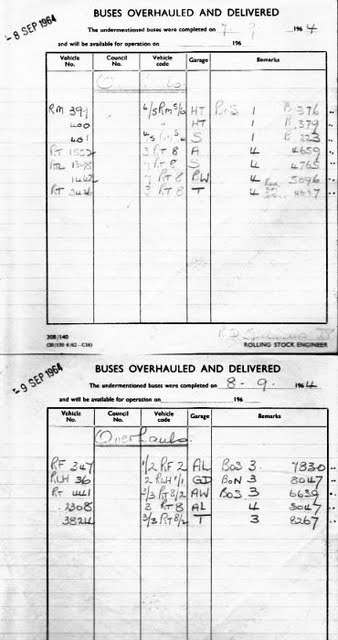 -8 SEP 1964
BUSES OVERHAULED AND DELIVERED
The undermentioned buses were completed on 7-9 1964
and will be available for operation on 196
Vehicle No. Council No. Vehicle code Garage Remarks
Overhauls
RM 399 4/5 RM 5/6 HT BoS 1 B 376
400 " HT 1 B 379
401 S 1 B 323
RT 3 RT 8 A 4 4659
RT 8 S 4 4765
RT 8 RW 4 5096
RT 3 RT 8 T 4
308/140
ROLLING STOCK ENGINEER
-9 SEP 1964
BUSES OVERHAULED AND DELIVERED
The undermentioned buses were completed on 8-9- 1964
and will be available for operation on 196
Vehicle No. Council No. Vehicle code Garage Remarks
Overhauls
RF 347 1/2 RF 2 AL BoS 3 7830
RLH 36 2 RLH 1/1 GD BoN 3 8047
RT 4441 3/3 RT 8/2 AW BoS 3 6639
2308 3 RT 8 AL 4 5047
3824 3/3 RT 8/2 T 3 8267